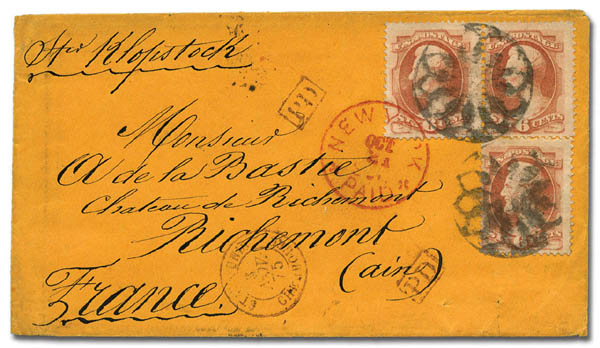 Str Klopstock
U.S. POSTAGE
6 CENTS
PD
NEW YORK
OCT
24
PAID
Monsieur
A de la Bastie
Chateau de Richemont
Richemont
(Ain)
France.
PD